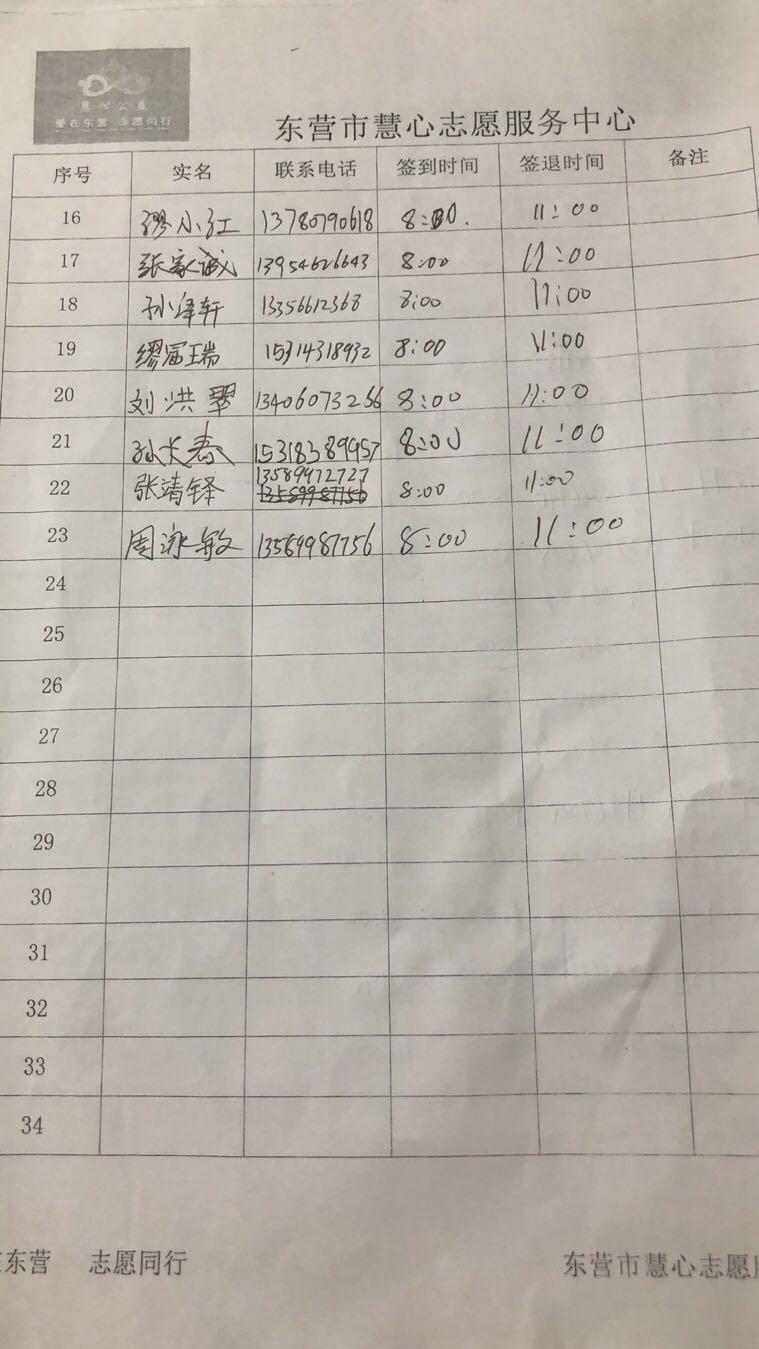 慧心公益
爱在东营 志愿同行
东营市慧心志愿服务中心
序号 实名 联系电话 签到时间 签退时间 备注
16 缪小红 13780790618 8:00. 11:00
17 张家诚 13954626643 8:00 11:00
18 孙泽轩 13356612368 8:00 11:00
19 缪富瑞 15314318932 8:00 11:00
20 刘洪翠 13406073256 8:00 11:00
21 孙长春 15318389957 8:00 11:00
22 张靖铎 13589972727 13589987756 8:00 11:00
23 周泳敏 13589987756 8:00 11:00
24
25
26
27
28
29
30
31
32
33
34
东营 志愿同行
东营市慧心志愿